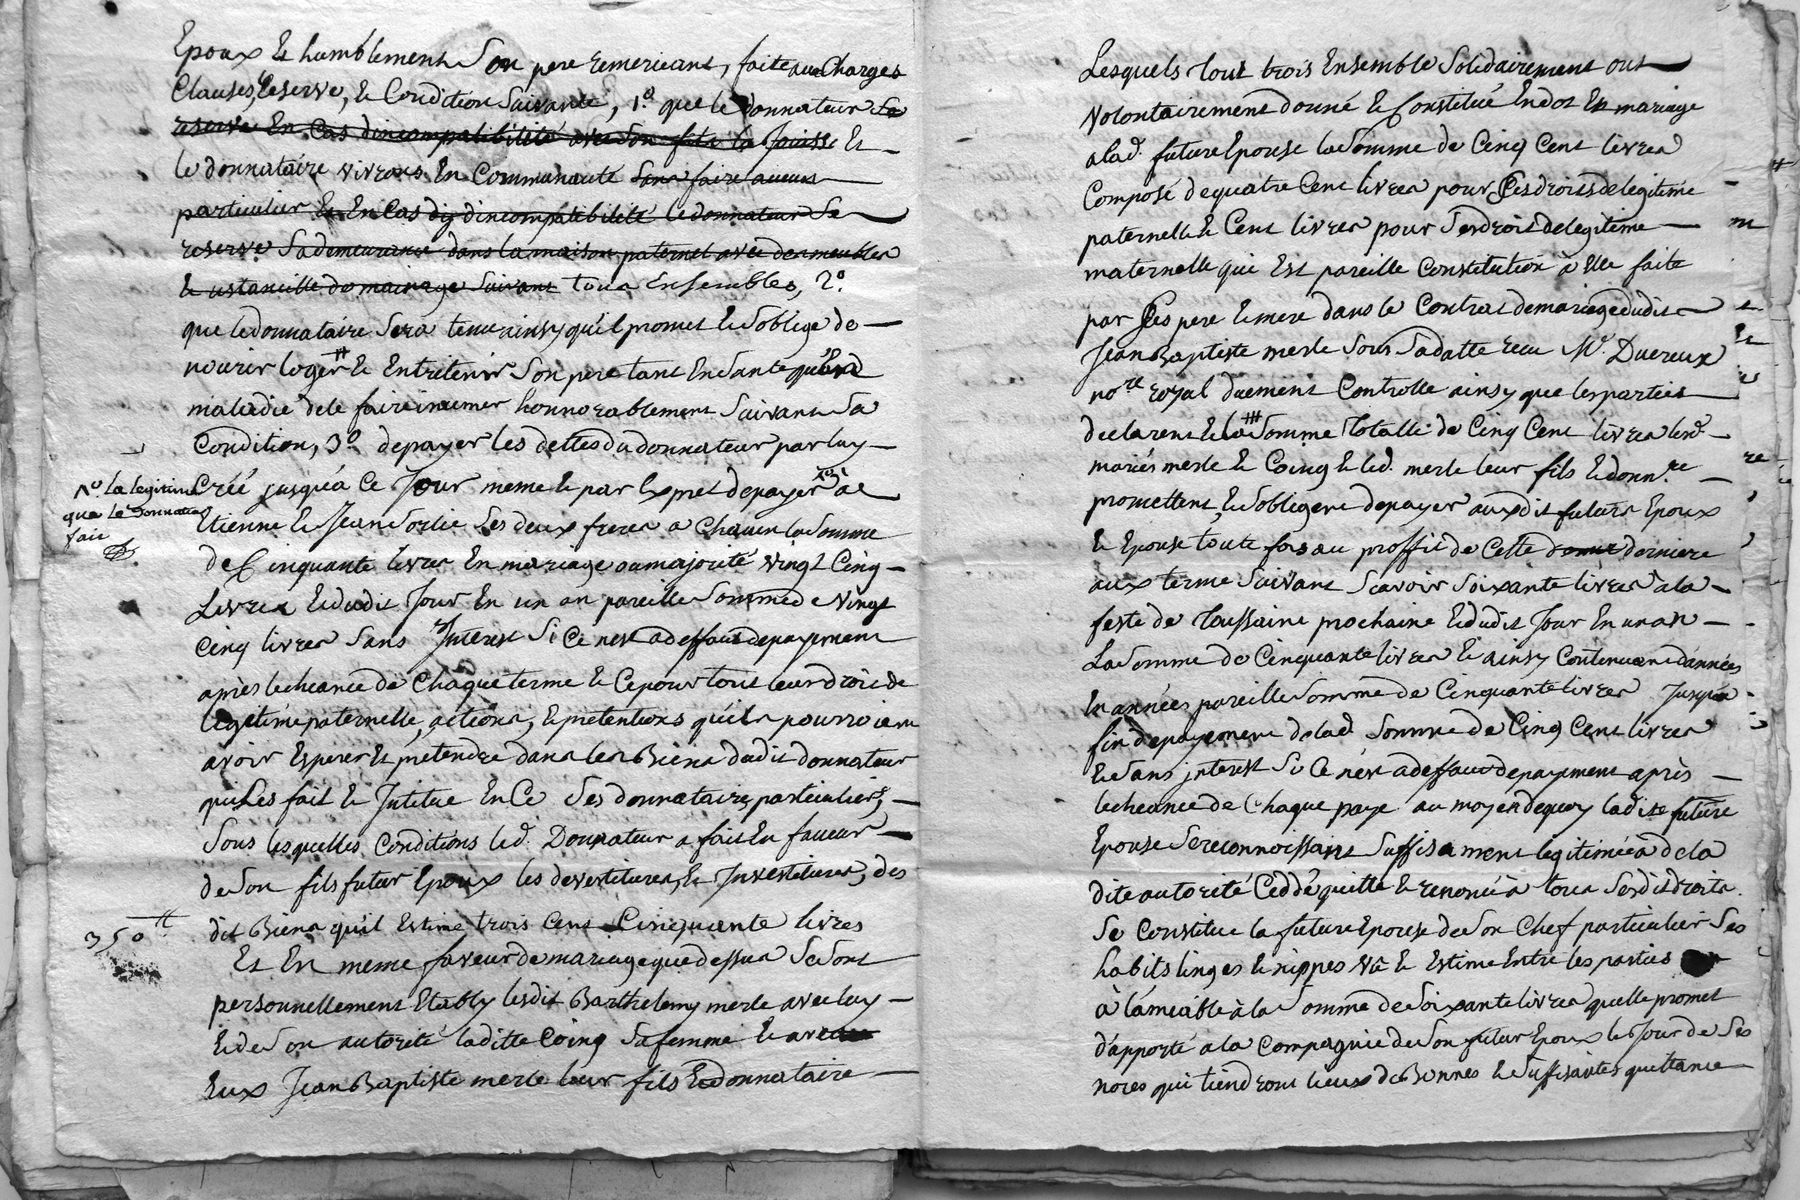 Epoux et humblement Son pere remerciant, faite aux Charges
Clauses, Reserve, et Condition Suivante, 1.º que le donnateur Se
reserve En Cas dincompatibilité avec Son fils la Joüisse Et
le donnataire vivrons En Communauté Sans faire aucun
particulier Et En Cas dincompatibilité le donnateur Se
reserve Sa demeurance dans la maison paternel avec des meubles
et ustancille de mainage Suivant tous Ensembles, 2.º
que le donnataire Sera tenu ainsy qu'il promet et s'oblige de
nourir loger et Entretenir Son pere tant En Sante qu'En
maladie de le faire inumer honnorablement Suivant Sa
Condition, 3.º de payer les dettes du donnateur par luy
Créé jusqu'a Ce Jour meme et par Exprès de payer a
nº la legitime
que le Donnateur
fait
Etienne et Jean Sorlie Ses deux freres a chacun la Somme
de Cinquante livres En mariage ou majorité vingt Cinq
Livres et dudit Jour En un an pareille Somme de Vingt
Cinq livres Sans Interest Si Ce nest a deffaut de payement
après lecheance de Chaque terme et Ce pour tout leur droit de
legitime paternelle, actions, et pretentions qu'ils pourroient
avoir Esperer Et pretendre dans les Biens dudit donnateur
qui Les fait et Intitue En Ce Ses donnataires particuliers,
Sous lesquelles Conditions led. Donnateur a fait En faveur
de Son fils futur Epoux les devestitures, et Investitures, des
dit Biens qu'il Estime trois Cent Cinquante livres
350 tt
Et En meme faveur de mariage que dessus Se Sont
personnellement Etably lesdit Barthelemy merle avec luy
Et de Son autorité laditte Coing Sa femme et avec
Eux Jean Baptiste merle leur fils et donnataire
Lesquels tout trois Ensemble Solidairement ont
volontairement donné et Constitué En dot En mariage
a lad. future Epouse la Somme de Cinq Cent livres
Composé de quatre Cent livres pour Ses droits de legitime
paternelle et Cent livres pour Ses droit de legitime
maternelle qui Est pareille Constitution à Elle faite
par Ses pere et mere dans le Contrat de mariage dudit
Jean Baptiste merle Sous Sa datte recu Mº. Ducreux
nore royal duement Controlle ainsy que les parties
declarent et la Somme Totalle de Cinq Cent livres lesd.
mariés merle et Coing et led. merle leur fils et donn.re
promettent, et s'obligent de payer auxdit futurs Epoux
et Epouse toute fois au proffit de Cette derniere
aux terme Suivant Scavoir Soixante livres à la
feste de Toussaint prochaine et dudit Jour En un an
La Somme de Cinquante livres et ainsy Continuant d'années
En années pareille Somme de Cinquante livres Jusqu'a
fin de payement de lad. Somme de Cinq Cent livres
et Sans interest Si Ce n'est a deffaut de payement après
lecheance de Chaque paye au moyen de quoy ladite future
Epouse Se reconnoissant Suffisament legitimée de la
dite autorité Ceddé quitte et renoncé à tous Sesdit droits.
Se Constitue la future Epouse de Son Chef particulier Ses
habits linges et nippes vû et Estimé Entre les parties
à lamiable à la Somme de Soixante livres quelle promet
d'apporté a la Compagnie de Son futur Epoux le Jour de Ses
noces qui tiendront lieux de Bonnes et Suffisantes quittance